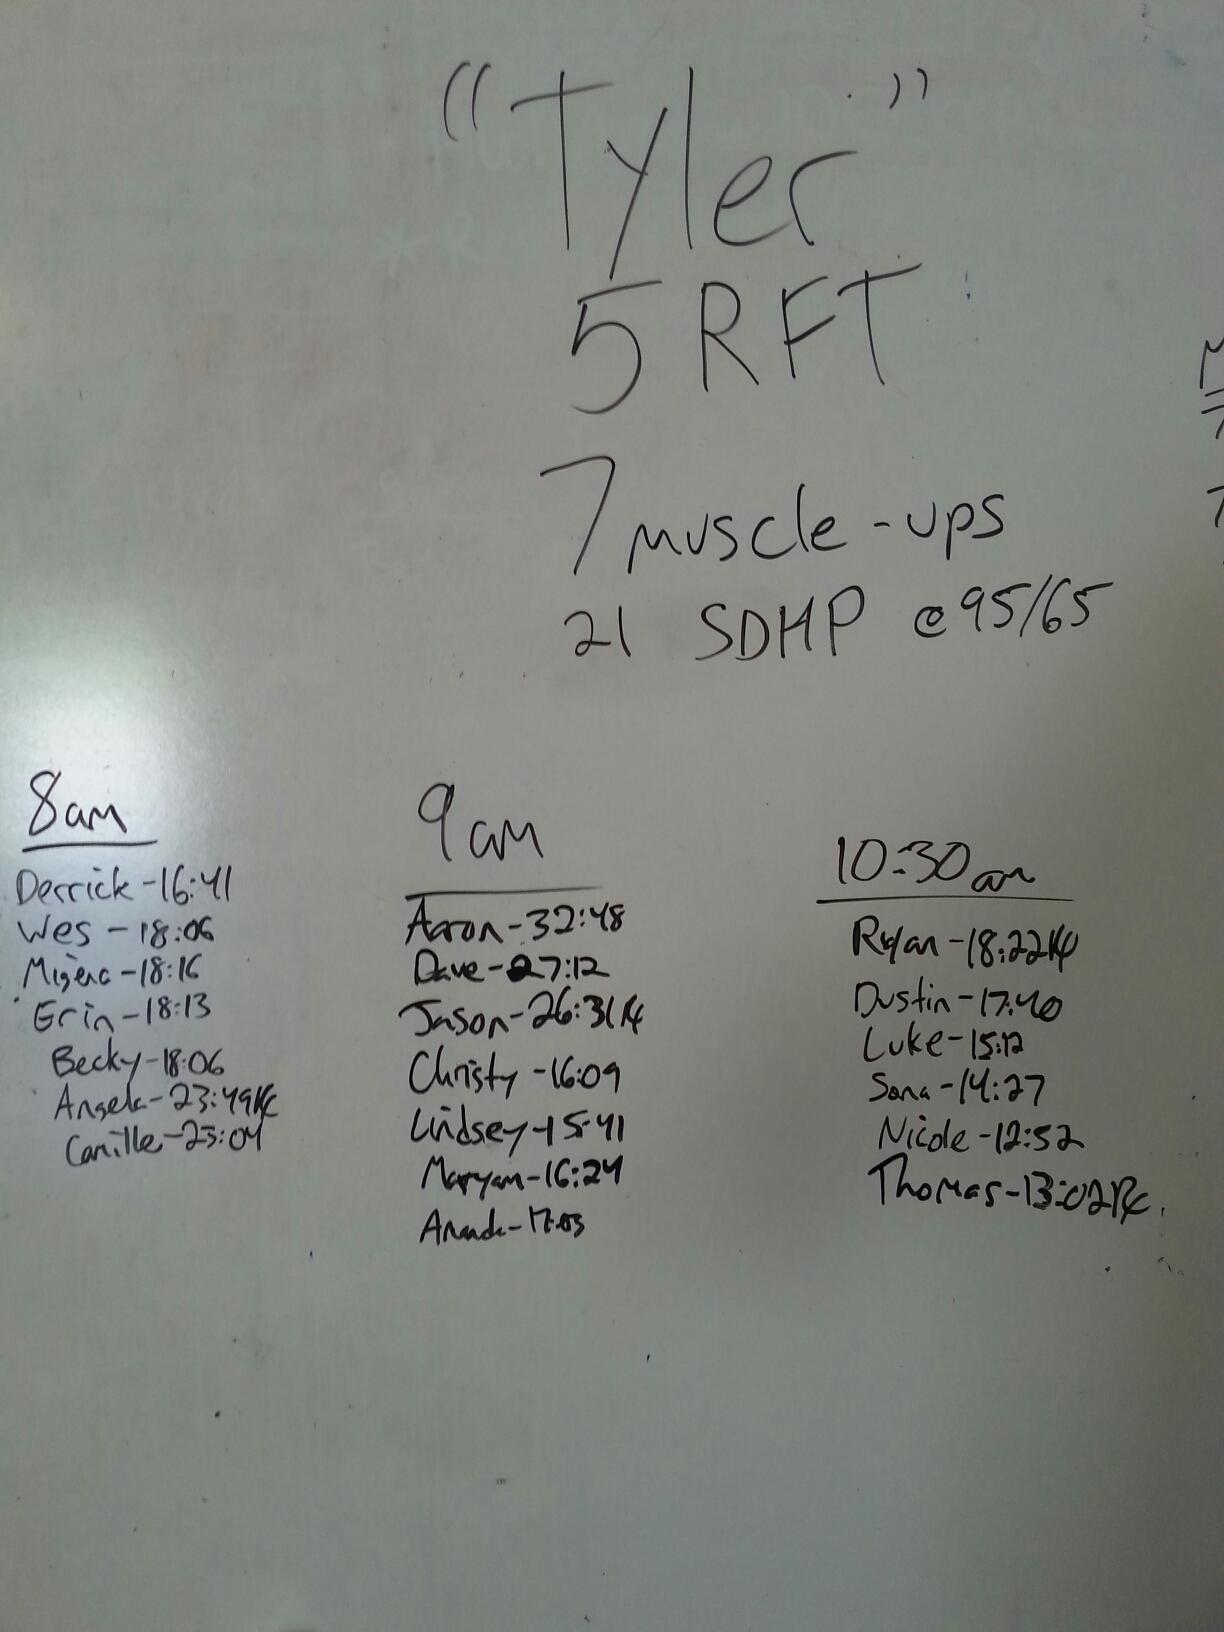 "Tyler"
5 RFT
7 muscle-ups
21 SDHP @ 95/65
8am
Derrick - 16:41
Wes - 18:06
18:16
Erin - 18:13
Becky - 18:06
Angela - 23:49 RX
Camille - 23:04
9am
Aaron - 32:48
Dave - 27:12
Jason - 26:31 RX
Christy - 16:09
Lindsey - 15:41
Maryam - 16:24
17:03
10:30am
Ryan - 18:22 RX
Dustin - 17:40
Luke - 15:12
Sona - 14:27
Nicole - 12:52
Thomas - 13:02 RX